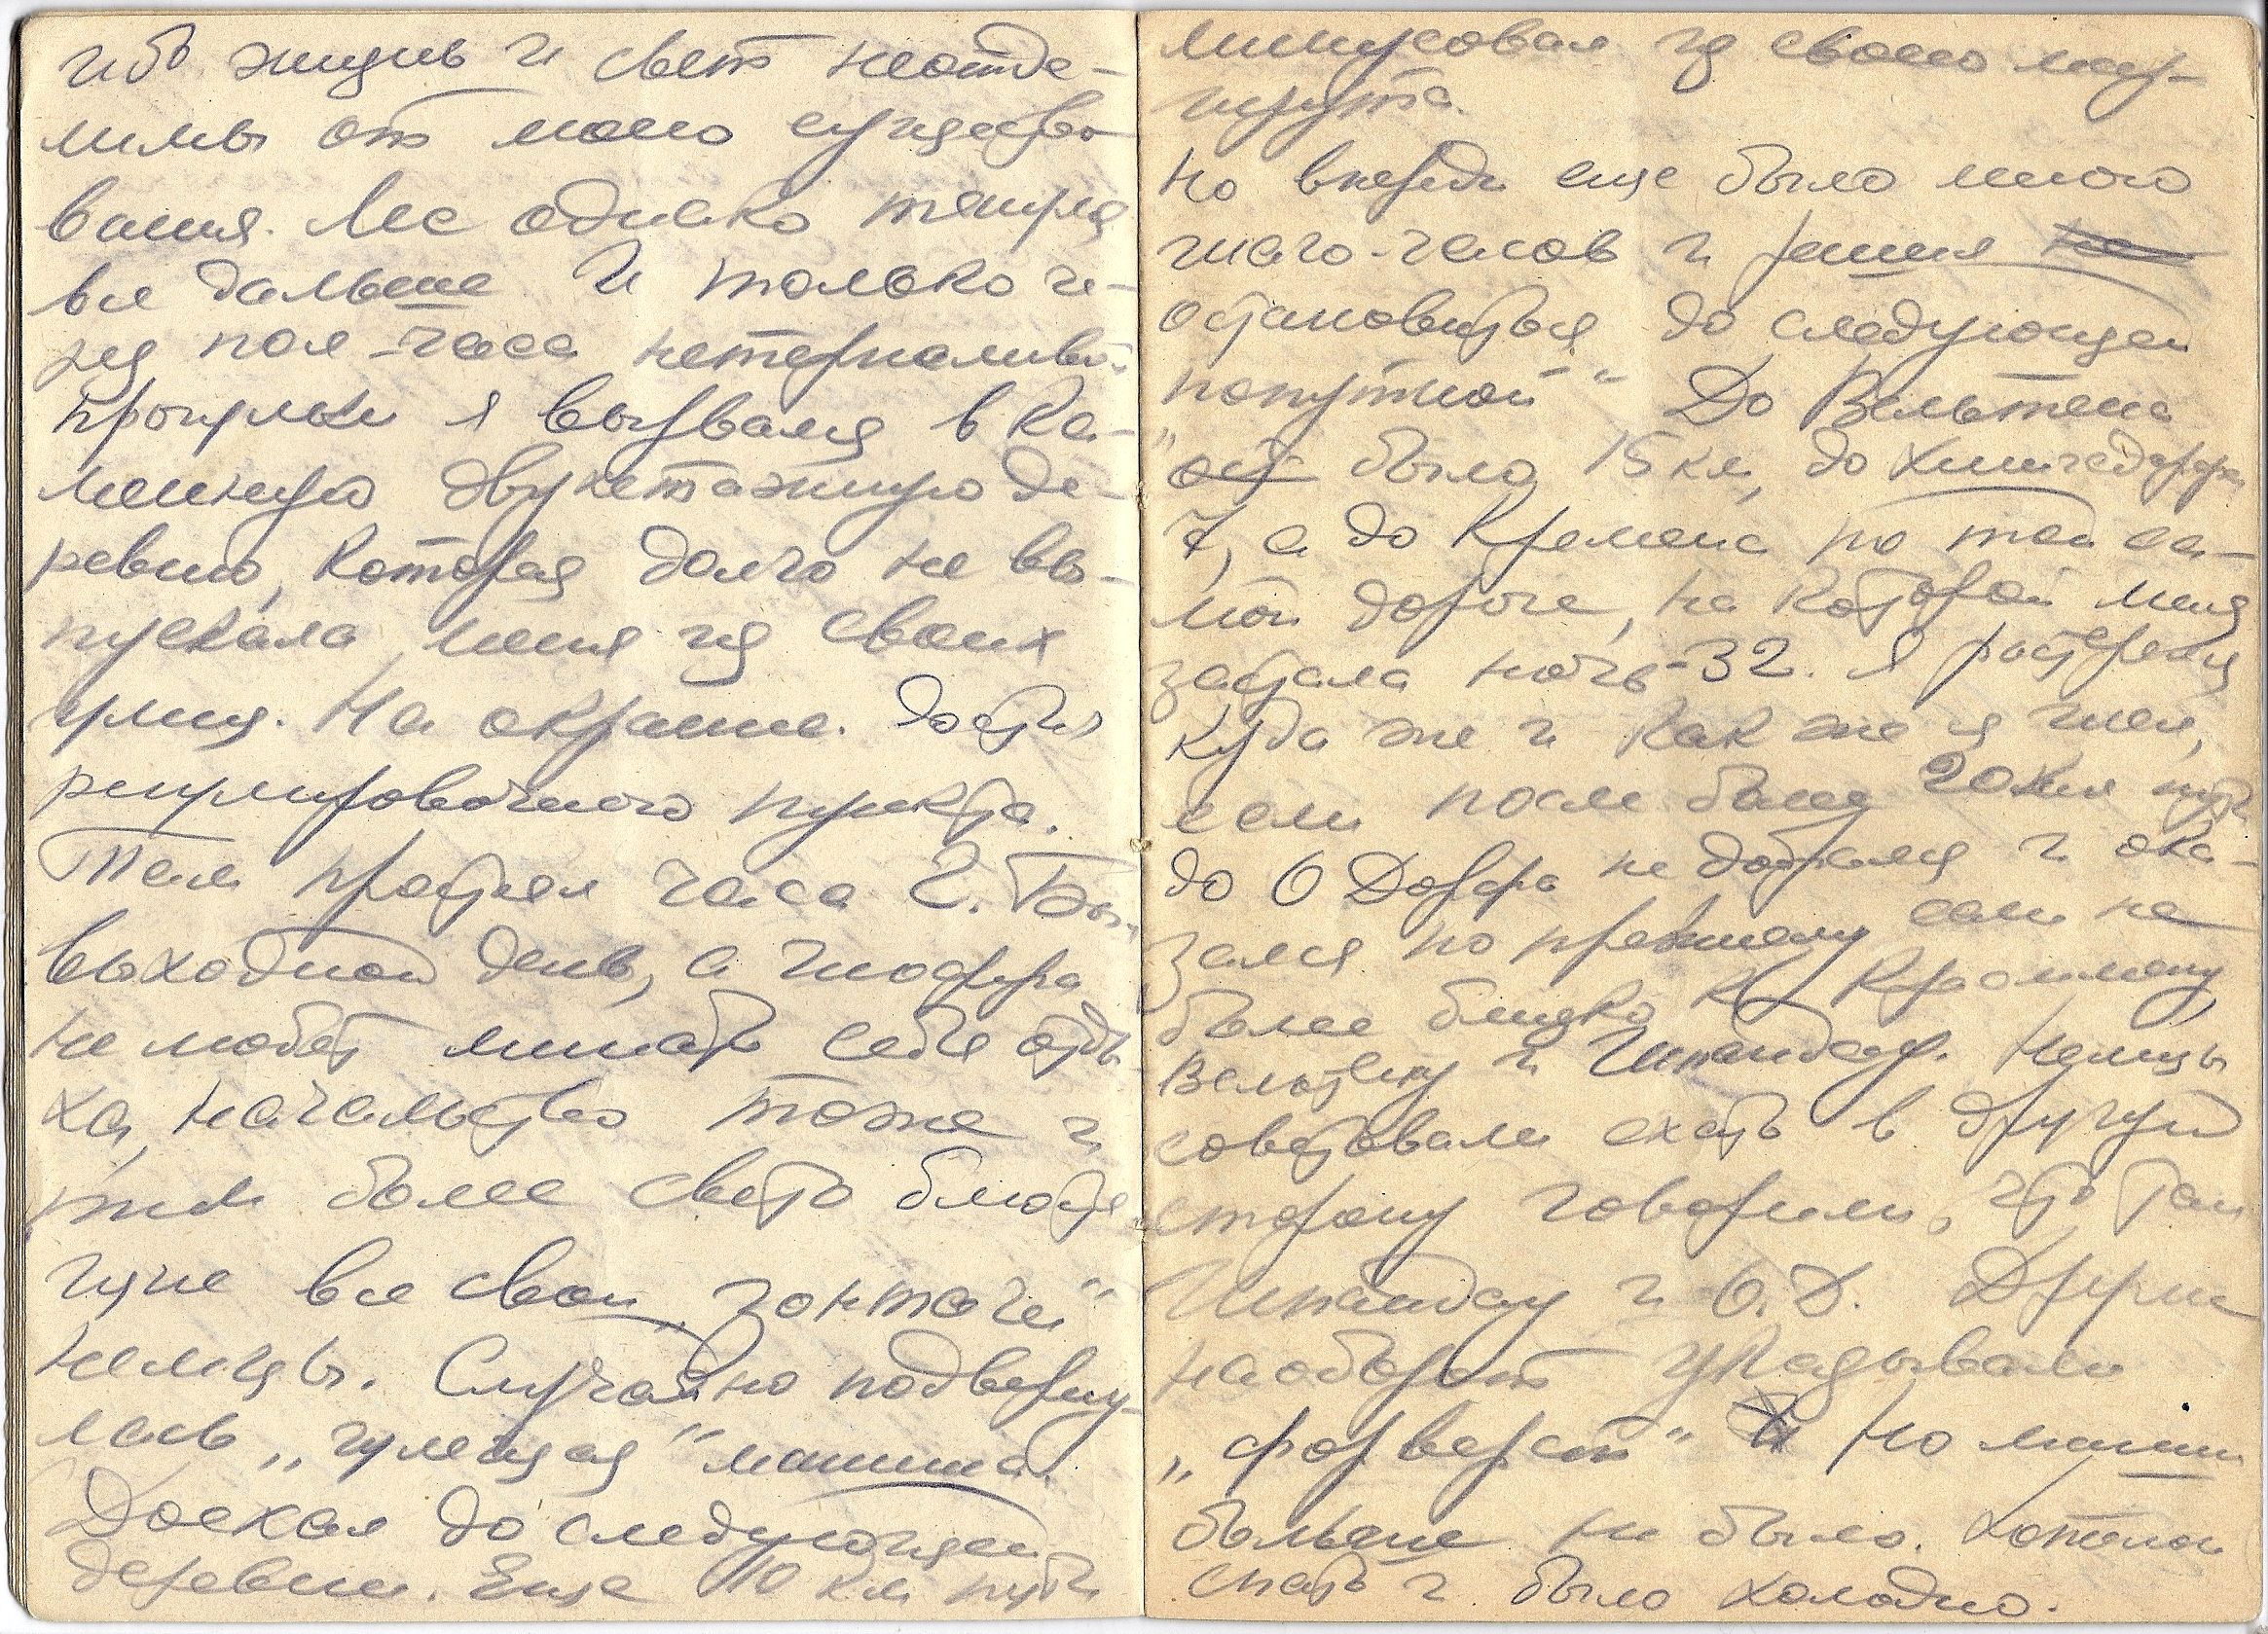 ибо жизнь и свет неотде-
лимы от моего существо
вания. Лес однако тянулся
все дальше и только че-
рез пол-часа нетерпеливой
прогулки я вырвался в ка-
менную двухэтажную де-
ревню, которая долго не вы-
пускала меня из своих
улиц. На окраине. Достиг
регулировочного пункта.
Там простоял часа 2. Был
выходной день, а шофера
не любят лишать себя отды
ха, начальство тоже и
тем более свято блюдя
щие все свои „зонтаги"
немцы. Случайно подверну-
лась „гулящая" машина.
Доехал до следующей
деревни. Еще 10 км пути
минусовал из своего мар-
шрута.
Но впереди еще было много
шаго-часов и решил не
остановиться до следующей
„попутной" До Вельтена
ост было 15 км, до Хеннигсдорфа
7, а до Кремена по той са-
мой дороге, на которой меня
застала ночь - 32. Я растерялся
куда же и как же я шел,
если после более 20 км пути
до О Дорфа не добрался и ока-
зался по прежнему если не
более близко к Кремену,
Вельтену и Шпандау. Немцы
советовали ехать в другую
сторону говорили, что там
Шпандау и О.Д. Другие
наоборот указывали
„форверст" И Но машин
больше не было. Хотелось
спать и было холодно.